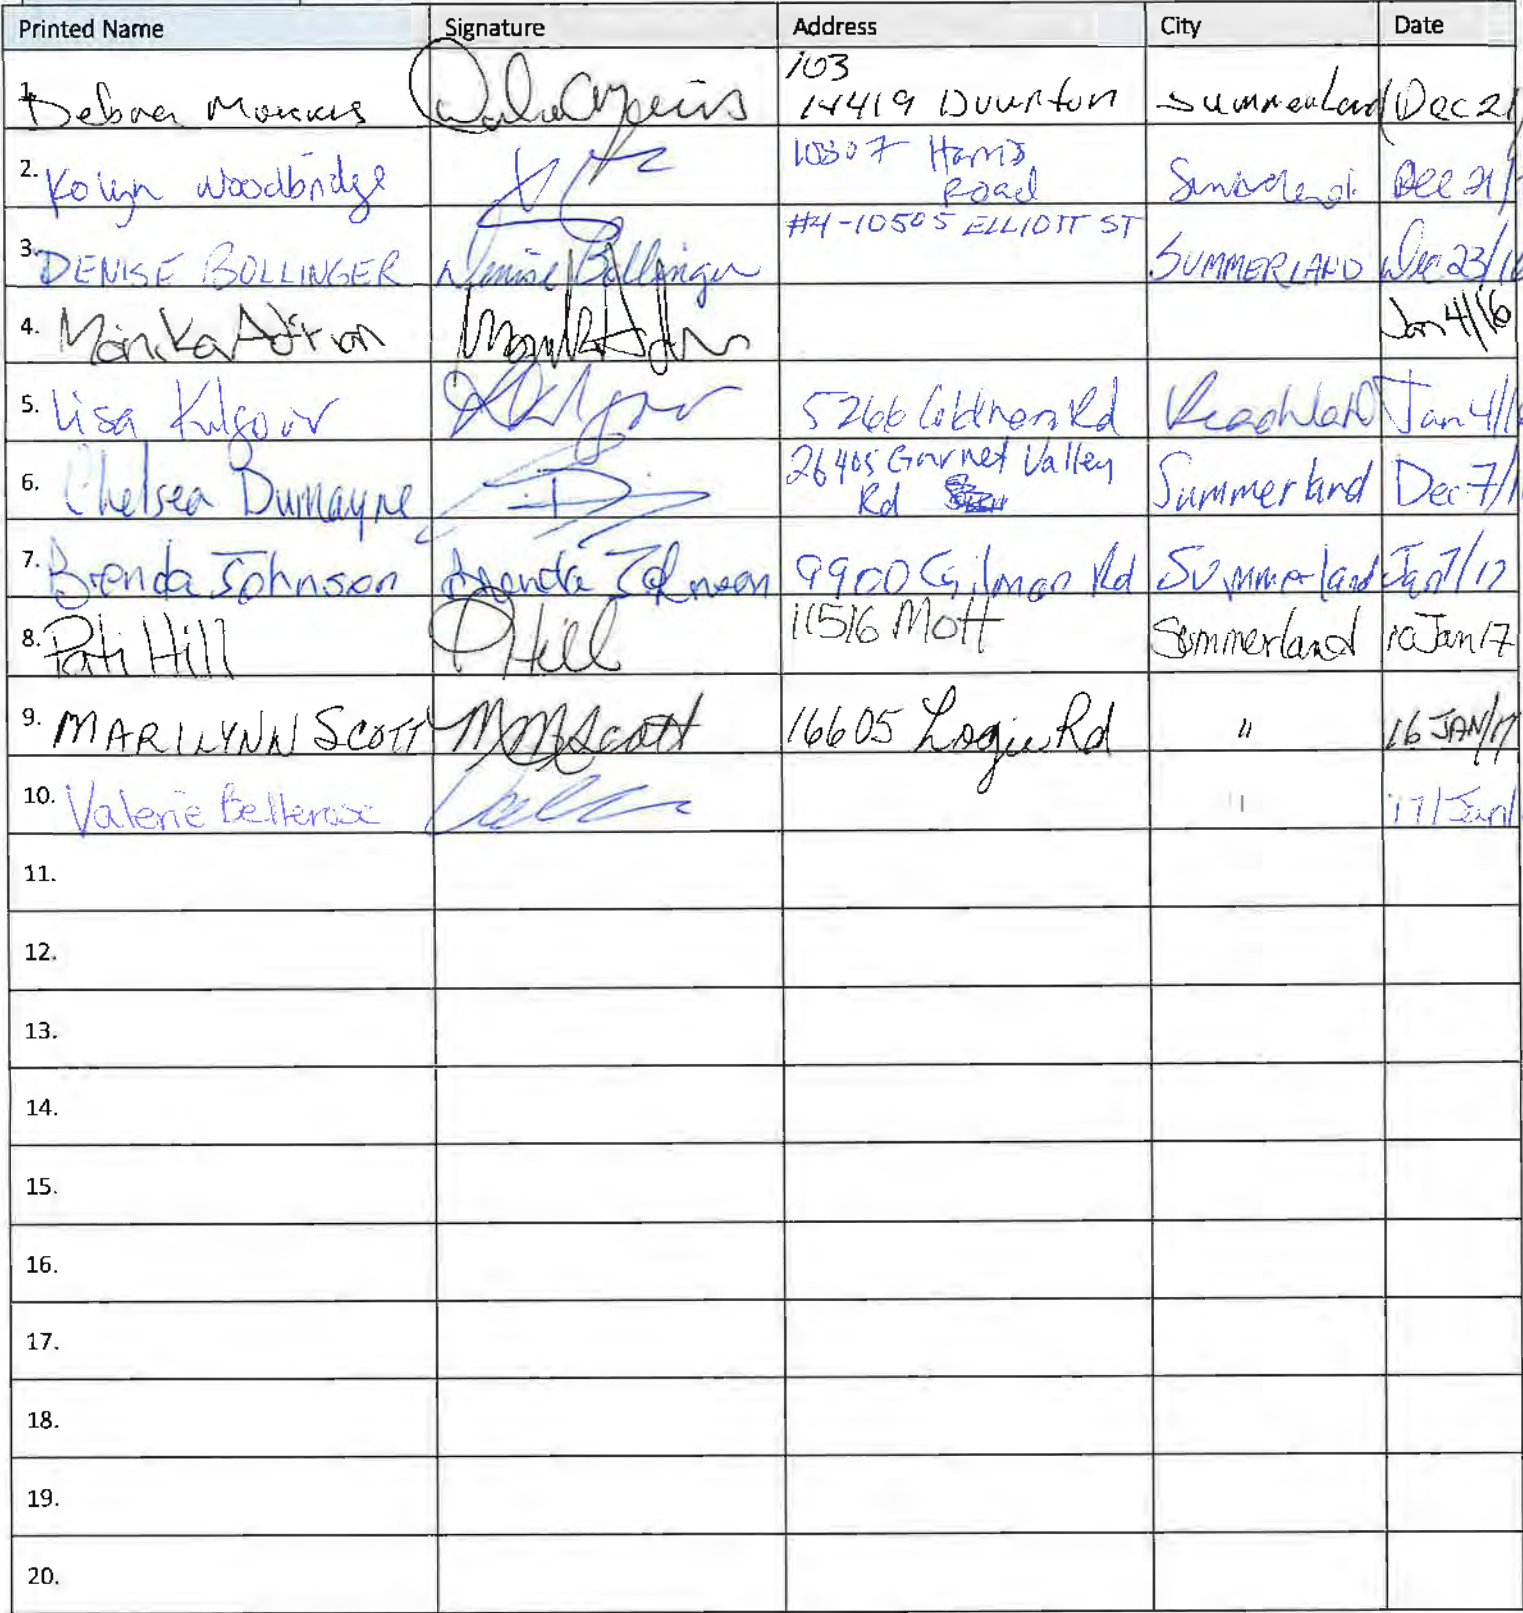 Printed Name Signature Address City Date
103
1. 14419 Summerland Dec 21/
2. Woodbridge 10307 Harris Dec 21/
Road
3. DENISE BOLLINGER Denise Bollinger #4-10505 ELLIOTT ST SUMMERLAND Dec 23/16
4. Monika Jan 4/16
5. Lisa Kilgour 5266 Rd Jan 4/16
6. Chelsea Dumayne 26405 Garnet Valley Summerland Dec 7/1
Rd
7. Brenda Johnson Brenda Johnson 9900 Gilman Rd Summerland Jan 7/17
8. Pati Hill P Hill 11516 Mott Summerland 10 Jan 17
9. MARILYNN SCOTT MMScott 16605 Logie Rd " 16 JAN/17
10. Valerie Bellerose " 17/Jan/
11.
12.
13.
14.
15.
16.
17.
18.
19.
20.